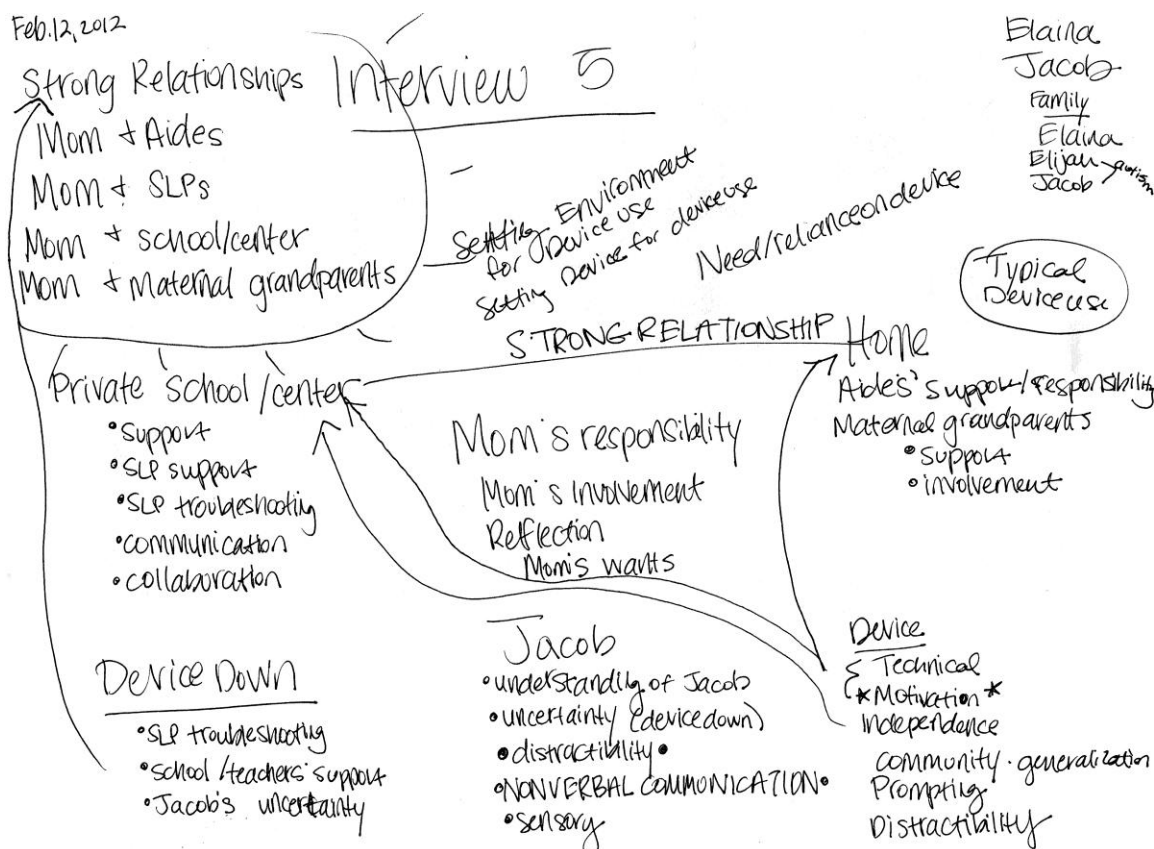 Feb.12, 2012
Interview 5
Strong Relationships
Mom + Aides
Mom + SLPs
Mom + school/center
Mom + maternal grandparents
Setting Environment
for Device use
Setting Device for device use
Need/reliance on device
Elaina
Jacob
Family
Elaina
Elijah
Jacob
autism
Typical
Device use
STRONG RELATIONSHIP
Private school/center
•support
•SLP support
•SLP troubleshooting
•communication
•collaboration
Home
Aides' support/responsibility
Maternal grandparents
•support
•involvement
Mom's responsibility
Mom's Involvement
Reflection
Mom's wants
Device Down
•SLP troubleshooting
•school/teachers' support
•Jacob's uncertainty
Jacob
•understanding of Jacob
•uncertainty (device down)
•distractibility•
•NONVERBAL COMMUNICATION•
•sensory
Device
Technical
*Motivation*
Independence
community·generalization
Prompting
Distractibility